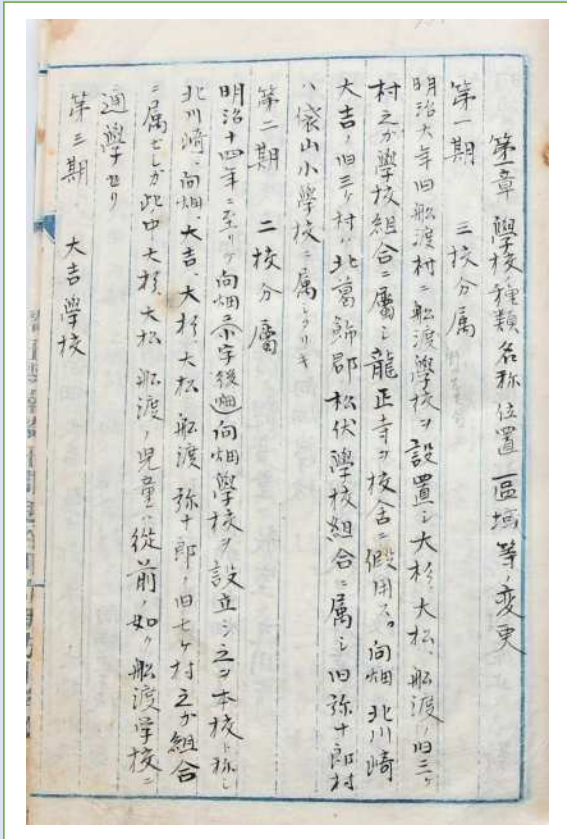 第一章 學校種類名称位置區域等ノ変更
第一期 三校分属
明治六年旧舩渡村ニ舩渡學校ヲ設置シ大杉、大松、舩渡ノ旧三ヶ
村之ガ學校組合ニ属シ龍正寺ヲ校舎ニ假用ス。向畑 北川崎
大吉ノ旧三ヶ村ハ北葛飾郡松伏學校組合ニ属シ旧弥十郎村
ハ袋山小學校ニ属シタリキ
第二期 二校分属
明治十四年ニ至リテ向畑(小字後畑)向畑學校ヲ設立シ之ヲ本校ト称シ
北川崎、向畑、大吉、大杉、大松 舩渡 弥十郎ノ旧七ヶ村之ガ組合
ニ属セシガ此中大杉、大松 舩渡ノ児童ハ從前ノ如ク舩渡学校ニ
通學セリ
第三期 大吉學校